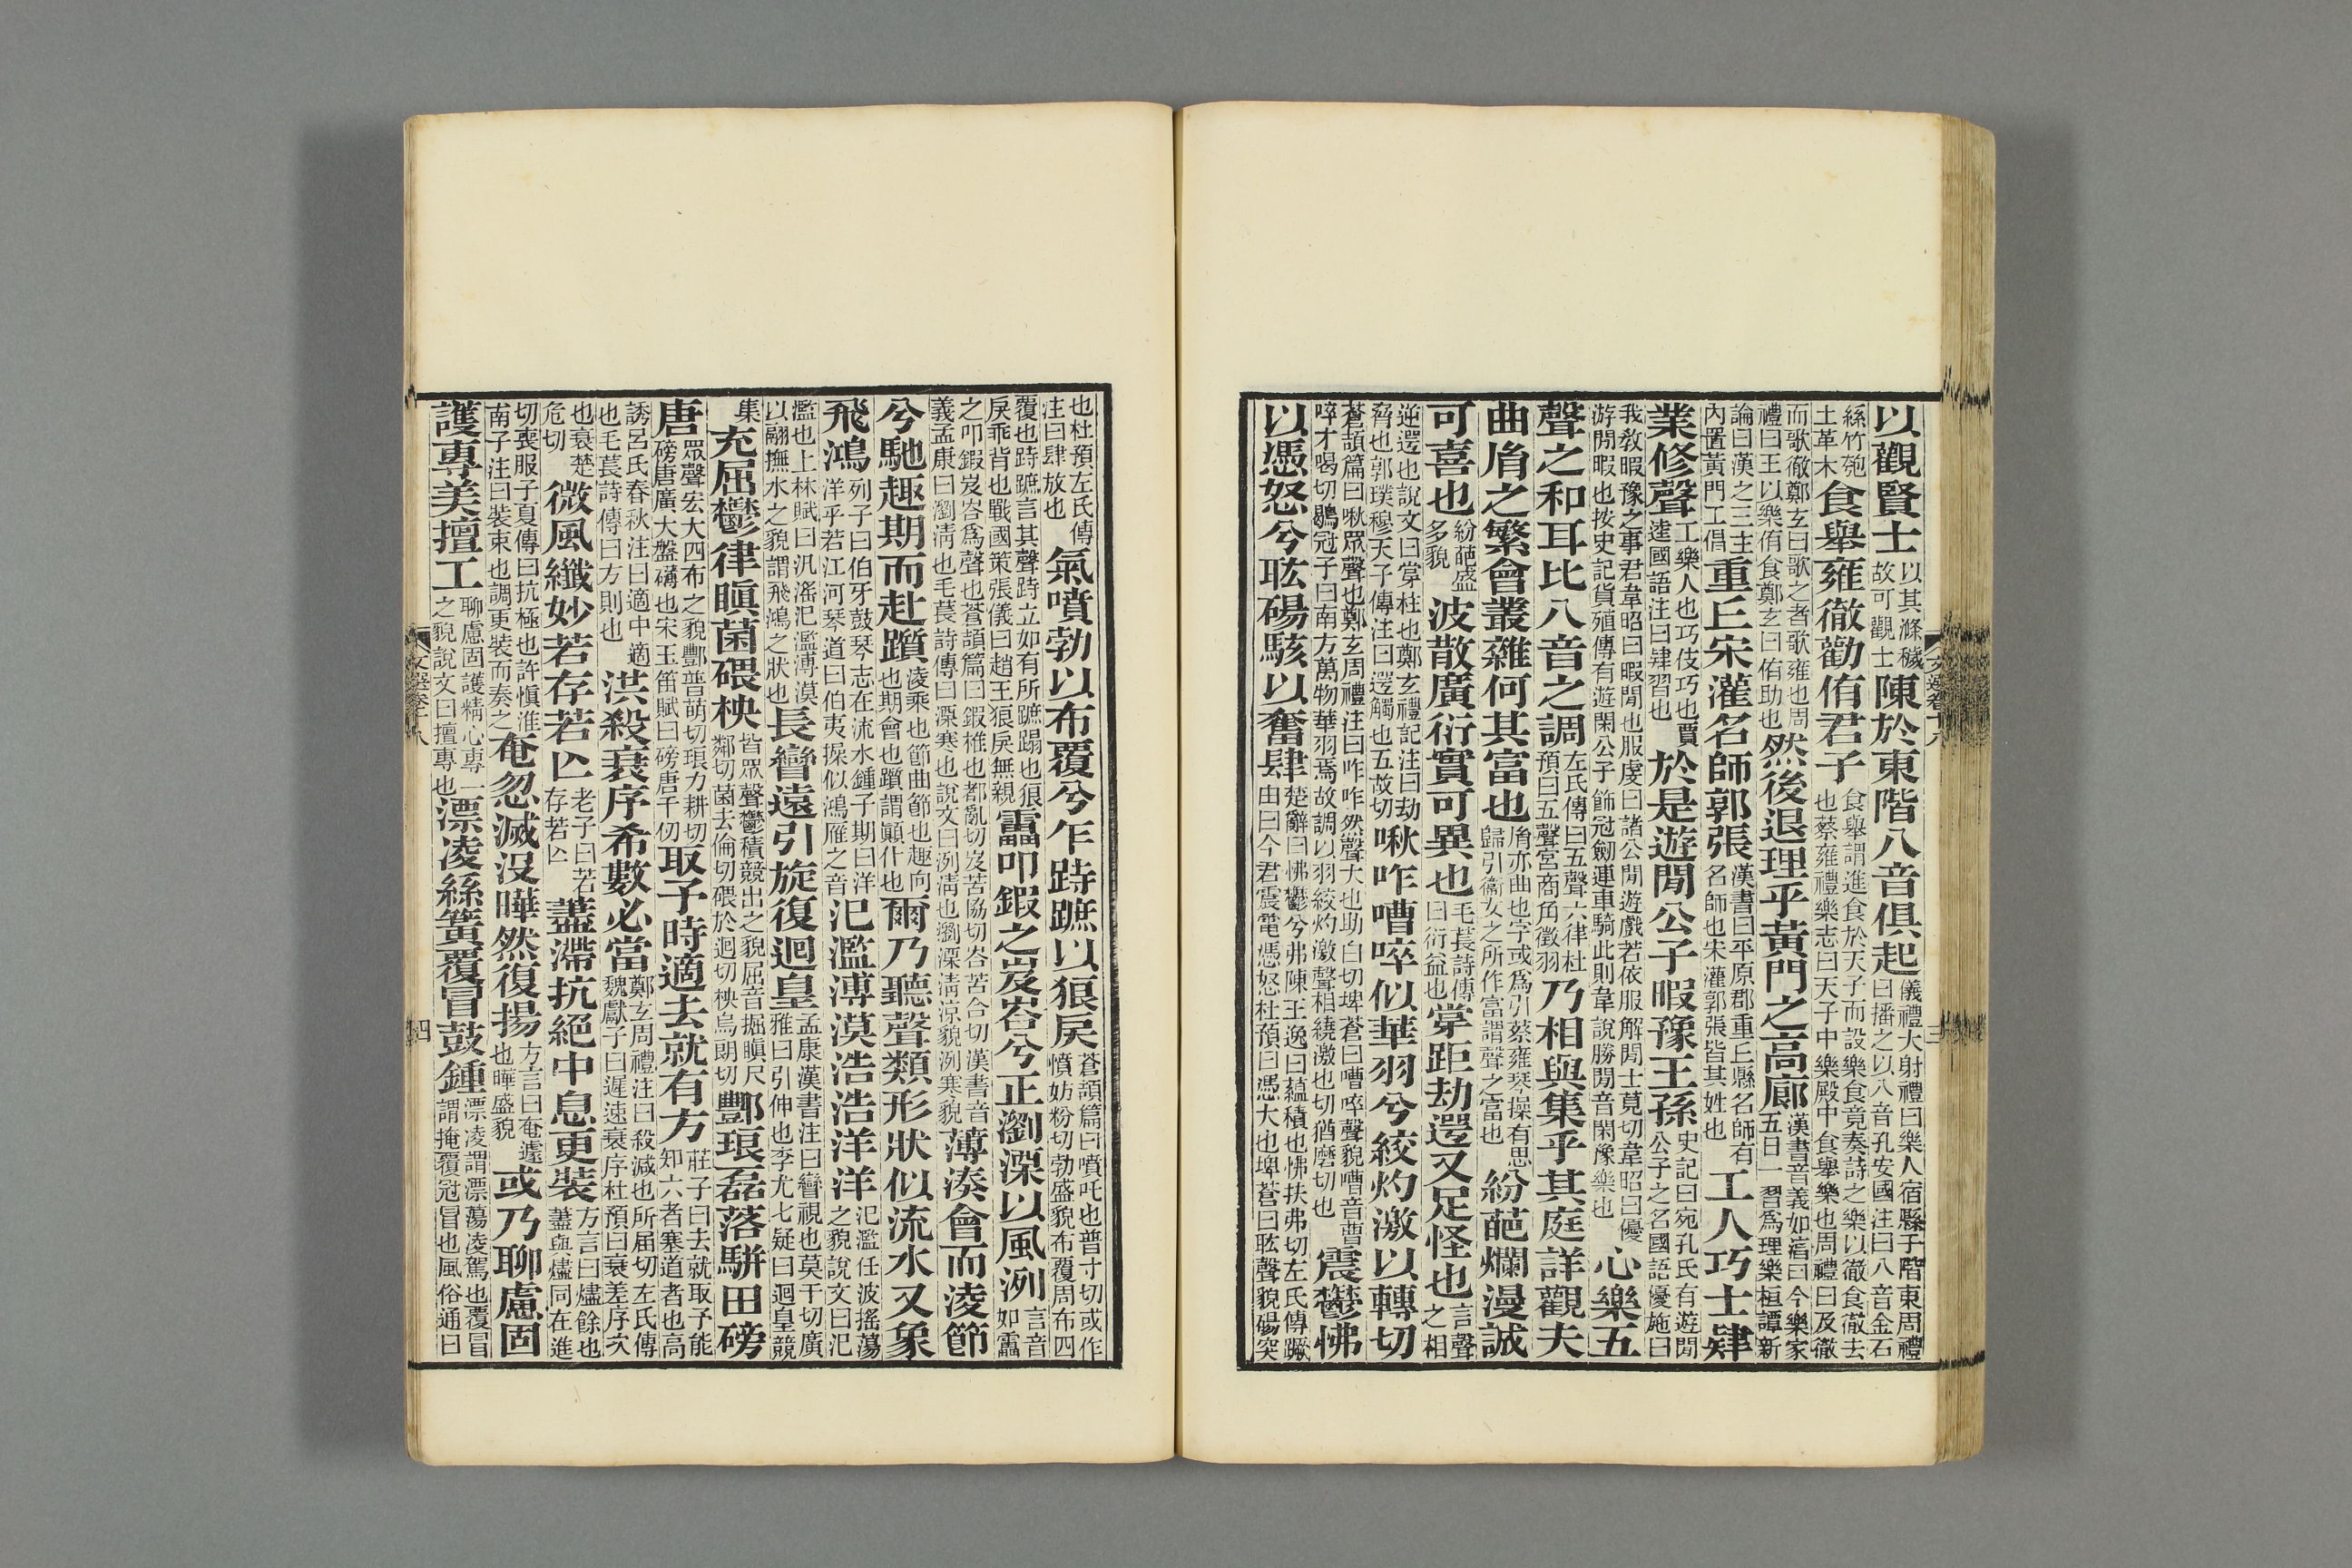 以觀賢士以其滌穢故可觀士陳於東階八音俱起儀禮大射禮曰樂人宿縣于階東周禮曰播之以八音孔安國注曰八音金石
絲竹匏土革木食舉雍徹勸侑君子食舉謂進食於天子而設樂食竟奏詩之樂以徹食徹去也蔡雍禮樂志曰天子中樂殿中食舉樂也周禮曰及徹
而歌徹鄭玄曰歌之者歌雍也周禮曰王以樂侑食鄭玄曰侑助也然後退理乎黃門之高廊漢書音義如淳曰今樂家五日一習爲理樂桓譚新
論曰漢之三主內置黃門工倡重丘宋灌名師郭張漢書曰平原郡重丘縣名師有名師也宋灌郭張皆其姓也工人巧士肄
業修聲工樂人也巧伎巧也賈逵國語注曰肄習也於是遊閒公子暇豫王孫史記曰宛孔氏有遊閒公子之名國語優施曰
我教暇豫之事君韋昭曰暇閒也服虔曰諸公閒遊戲若依服解閒士莧切韋昭曰優游閒暇也按史記貨殖傳有遊閑公子飾冠劒連車騎此則韋說勝閒音閑豫樂也心樂五
聲之和耳比八音之調左氏傳曰五聲六律杜預曰五聲宮商角徵羽乃相與集乎其庭詳觀夫
曲胤之繁會叢雜何其富也胤亦曲也字或爲引蔡雍琴操有思歸引衛女之所作富謂聲之富也紛葩爛漫誠
可喜也紛葩盛多貌波散廣衍實可異也毛萇詩傳曰衍益也牚距劫遌又足怪也言聲之相
逆遌也說文曰牚柱也鄭玄禮記注曰劫脅也郭璞穆天子傳注曰遌觸也五故切啾咋嘈啐似華羽兮絞灼激以轉切
蒼頡篇曰啾眾聲也鄭玄周禮注曰咋咋然聲大也助白切埤蒼曰嘈啐聲貌嘈音曹啐才喝切鶡冠子曰南方萬物華羽焉故調以羽絞灼激聲相繞激也切猶磨切也震鬱怫
以憑怒兮耾碭駭以奮肆楚辭曰怫鬱兮弗陳王逸曰蘊積也怫扶弗切左氏傳蹶由曰今君震電憑怒杜預曰憑大也埤蒼曰耾聲貌碭突
也杜預左氏傳注曰肆放也氣噴勃以布覆兮乍跱蹠以狼戾蒼頡篇曰噴吒也普寸切或作憤妨粉切勃盛貌布覆周布四
覆也跱蹠言其聲跱立如有所蹠蹋也狼戾乖背也戰國策張儀曰趙王狼戾無親靁叩鍜之岌峇兮正瀏溧以風冽言音如靁
之叩鍜岌峇爲聲也蒼頡篇曰鍜椎也都亂切岌苦協切峇苦合切漢書音義孟康曰瀏清也毛萇詩傳曰溧寒也說文曰冽清也瀏溧清涼貌冽寒貌薄湊會而凌節
兮馳趣期而赴躓凌乘也節曲節也趣向也期會也躓謂顚仆也爾乃聽聲類形狀似流水又象
飛鴻列子曰伯牙鼓琴志在流水鍾子期曰洋洋乎若江河琴道曰伯夷操似鴻雁之音氾濫溥漠浩浩洋洋氾濫任波搖蕩之貌說文曰氾
濫也上林賦曰汎滛氾濫溥漠以翩撫水之貌謂飛鴻之狀也長矕遠引旋復迴皇孟康漢書注曰矕視也莫干切廣雅曰引伸也李尤七疑曰迴皇競
集充屈鬱律瞋菌碨柍皆眾聲鬱積競出之貌屈音掘瞋尺鄰切菌去倫切碨於迴切柍烏朗切酆琅磊落駢田磅
唐眾聲宏大四布之貌酆普萌切琅力耕切磅唐廣大盤礴也宋玉笛賦曰磅唐千仞取予時適去就有方莊子曰去就取予能知六者塞道者也高
誘呂氏春秋注曰適中適也毛萇詩傳曰方則也洪殺衰序希數必當鄭玄周禮注曰殺減也所届切左氏傳魏獻子曰遲速衰序杜預曰衰差序次
也衰楚危切微風纖妙若存若亾老子曰若存若亾藎滯抗絕中息更裝方言曰燼餘也藎與燼同在進
切喪服子夏傳曰抗極也許愼淮南子注曰裝束也調更裝而奏之奄忽滅沒曄然復揚方言曰奄遽也曄盛貌或乃聊慮固
護專美擅工聊慮固護精心專一之貌說文曰擅專也漂凌絲簧覆冒鼓鍾漂凌謂漂蕩凌駕也覆冒謂掩覆冠冒也風俗通曰
文選卷十八
四